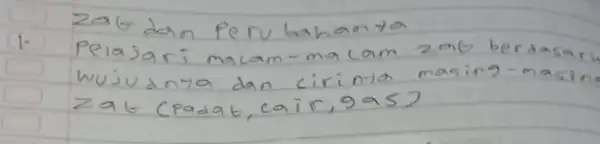 zat dan Perubahanya
1- Pelajari macam-macam zat berdasark
wujudnya dan cirinya masing-masing
zat (padat, cair, gas)